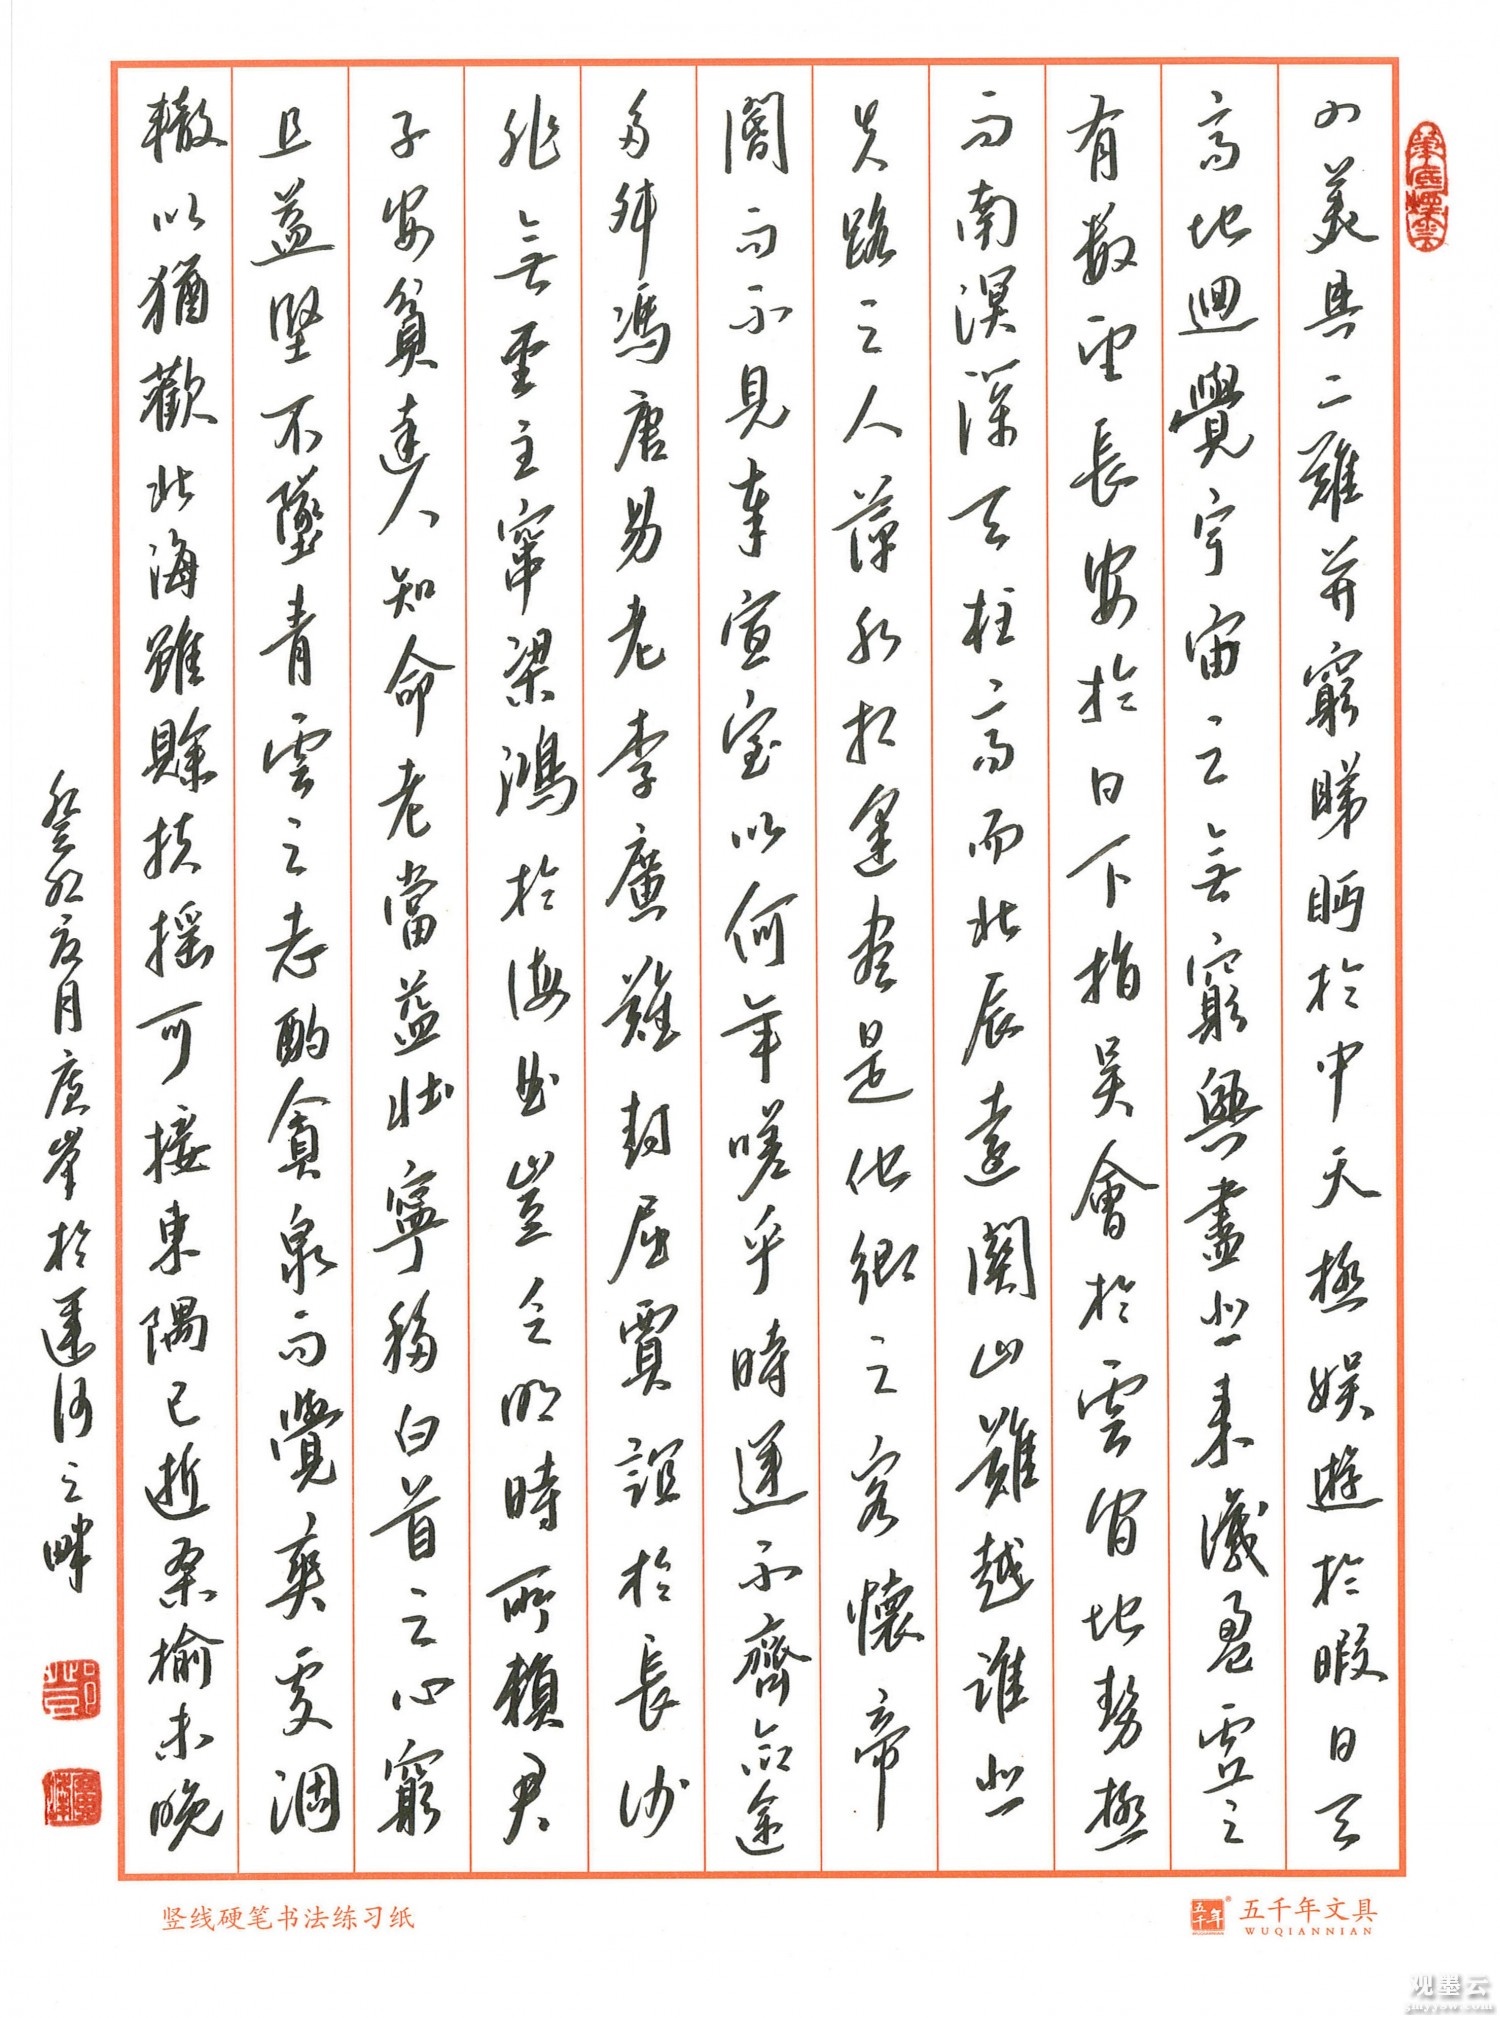 四美具二難并窮睇眄於中天極娛遊於暇日天
高地迥覺宇宙之無窮興盡悲來識盈虛之
有數望長安於日下指吳會於雲間地勢極
而南溟深天柱高而北辰遠關山難越誰悲
失路之人萍水相逢盡是他鄉之客懷帝
閽而不見奉宣室以何年嗟乎時運不齊命途
多舛馮唐易老李廣難封屈賈誼於長沙
非無聖主竄梁鴻於海曲豈乏明時所賴君
子安貧達人知命老當益壯寧移白首之心窮
且益堅不墜青雲之志酌貪泉而覺爽處涸
轍以猶歡北海雖賒扶搖可接東隅已逝桑榆未晚
癸卯夏月廣峯於運河之畔
竖线硬笔书法练习纸
五千年
五千年文具
WUQIANNIAN
观墨云
gmyyow.com